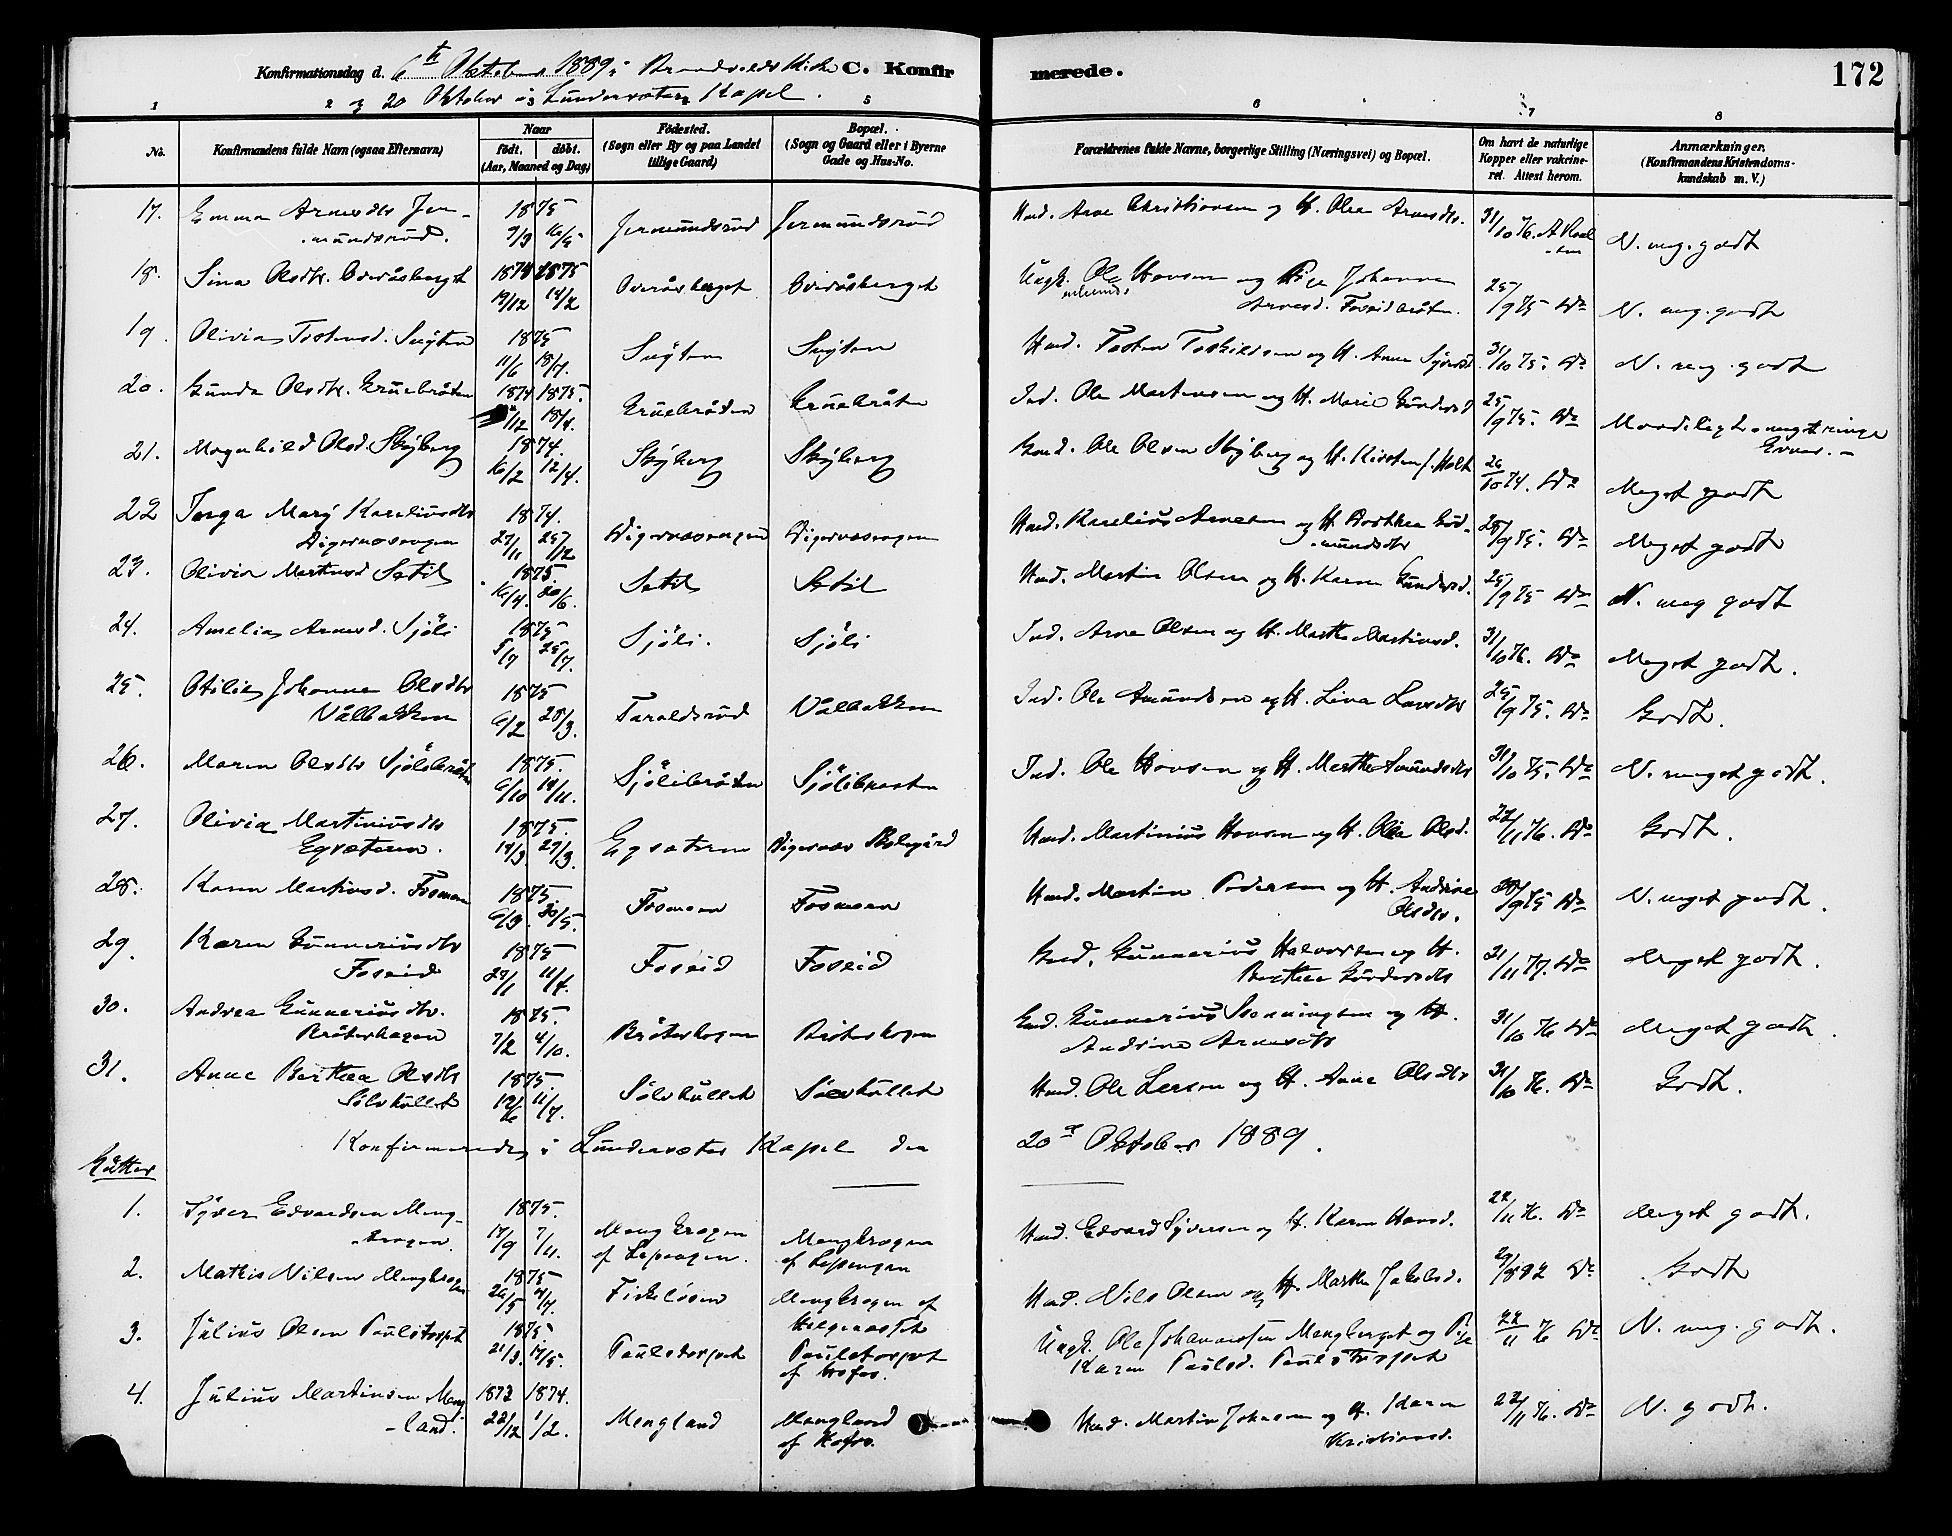 172
Konfirmationsdag d. 6te Oktober 1889 i Brandvolds Kirke C. Konfirmerede.
og 20 Oktober i Lundersæters Kapel.
1 2 3 5 6 7 8
No. Konfirmandens fulde Navn (ogsaa Efternavn) Naar født. døbt. (Aar, Maaned og Dag) Fødested. (Sogn eller By og paa Landet tillige Gaard) Bopæl. (Sogn og Gaard eller i Byerne Gade og Hus-No. Forældrenes fulde Navne, borgerlige Stilling (Næringsvei) og Bopæl. Om havt de naturlige Kopper eller vakcineret. Attest herom. Anmærkninger. (Konfirmandens Kristendomskundskab m. V.)
17. Emma Arnesdtr Jermundsrud. 1875 9/3 16/5 Jermundsrud Jermundsrud Hmd. Arne Christiansen og H. Olea Arnesdtr. 31/10 76. N. meg. godt
18. Sina Olsdtr. Overåsberget 1874 1875 19/12 14/2 Overåsberget Overåsberget Ungk. Ole Hansen og Pige Johanne Arnesd. Foseidbråten. 25/9 75 Do N. meg. godt
19. Olivia Tostensd. Sugten 1875 11/6 18/7. Sugten Sugten Hmd. Tosten Toskildsen og H. Anne Syversd. 31/10 75. Do N. meg. godt
20. Gunda Olsdtr. Gruebråten 1874 1875. /12 18/4. Gruebråten Gruebråten Ind. Ole Martensen og H. Marie Gundersd 25/9 75. Do
21. Magnhild Olsd. Skyberg 1874. 16/2 12/4. Skyberg Skyberg Gmd. Ole Olsen Skyberg og H. Kirsten J. Holt 26/10 74. Do Meget godt
22 Inga Mary Kareliusdtr Digernæsvogen 1874. 27/11 25/12 Digernæsvogen Digernæsvogen Hmd. Karelius Arnesen og H. Dorthea Gudmundsdtr 25/9 75. Do Meget godt
23. Olivia Martinsd Sætil 1875. 16/4. 20/6. Sætil Sætil Hmd. Martin Olsen og H. Karen Gundersd. 25/9 75 Do N. meg godt
24. Amelia Arnesd. Sjøli 1875 5/7 25/7. Sjøli. Sjøli Ind. Arne Olsen og H. Marthe Martinsd. 31/10 76. Do Meget godt.
25. Otilie Johanne Olsdtr Nålbakken 1875 6/2 28/3. Taraldsrud Nålbakken Ind. Ole Amundsen og H. Lina Larsdtr 25/9 75. Do Godt.
26. Maren Olsdtr Sjølibråten 1875. 6/10 14/11. Sjølibråten Sjølibraaten Ind. Ole Hansen og H. Marthe Amundsdtr 31/10 75. Do N. meget godt.
27. Olivia Martiniusdtr Egsæteren. 1875. 14/3. 29/3. Egsæteren Digernæs Hmd. Martinius Hansen og H. Olea Olsd. 22/11 76. Do Godt.
28. Karen Martinsd. Fosmoen 1875. 6/3. 30/5. Fosmoen Fosmoen Hmd. Martin Pedersen og H. Andrine Olsdtr. /9 75 Do N. meget godt.
29. Karen Gunneriusdtr Foseid 1875 27/1 11/4. Foseid Foseid Gmd. Gunnerius Halvorsen og H. Berthea Gundersdtr 21/11 77. Do Meget godt.
30. Andrea Gunneriusdtr. Bråterhagen 1875. 7/2 4/10. Bråterhagen Bråterhagen Gmd. Gunnerius Henningsen og H. Andrine Arnesdtr 31/10 76 Do Meget godt.
31. Anne Berthea Olsdtr Sølvhullet 1875. 12/6 11/7. Sølvhullet Sølvhullet Hmd. Ole Larsen og H. Anne Olsdtr 31/10 76. Do Godt.
Konfirmerede i Lundersæter Kapel den 20de Oktober 1889.
Gutter
1. Syver Edvardsen Mengkrogen. 1875. 17/9 7/11. Mengkrogen af Lepengen. Mengkrogen af Lepengen Hmd. Edvard Syversen og H. Karen Hansd. 22/11 76. Do Meget godt.
2. Mathis Nilsen Mengkrogen 1875 26/5 4/7. Fiskeløsen Mengkrogen af Helgenæsset Hmd. Nils Olsen og H. Marthe Jakobsd. 29/8 82 Do Godt
3. Julius Olsen Paulstorpet 1875. 21/3. 17/5. Paulstorpet Paulstorpet af Hofos. Ungk. Ole Johannessen Mengberget og Pige Karen Paulsd. Paulstorpet 22/11 76 Do N. meg. godt.
4. Julius Martinsen Mengland. 1873 1874. 22/12 1/2. Mengland Mengland af Hofos. Hmd. Martin Johnsen og H. Karen Kristiansd. 22/11 76. Do N. godt.